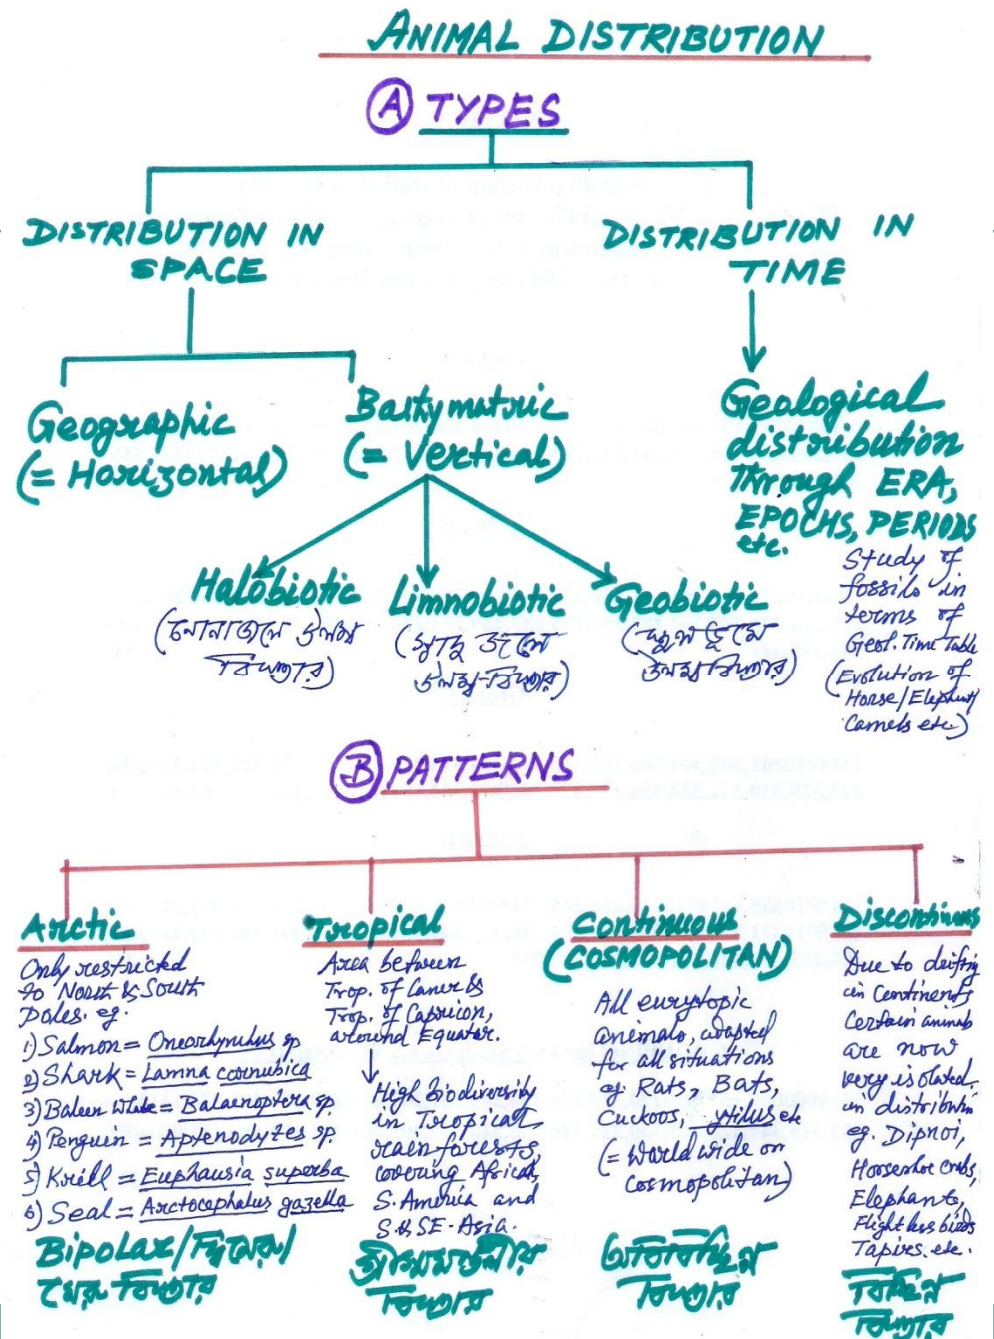 ANIMAL DISTRIBUTION
Ⓐ TYPES
DISTRIBUTION IN
SPACE
DISTRIBUTION IN
TIME
Geographic
(= Horizontal)
Bathymatric
(= Vertical)
Geological
distribution
Through ERA,
EPOCHS, PERIODS
etc.
Study of
fossils in
terms of
Geol. Time Table
(Evolution of
Horse/Elephant/
Camels etc)
Halobiotic
(লোনাজলে
বিস্তার)
Limnobiotic
(স্বাদু জলে
বিস্তার)
Geobiotic
(স্থলভূমে
বিস্তার)
Ⓑ PATTERNS
Arctic
Only restricted
to North & South
Poles. eg.
1) Salmon = Oncorhynchus sp
2) Shark = Lamna cornubica
3) Baleen Whale = Balaenoptera sp.
4) Penguin = Aptenodytes sp.
5) Krill = Euphausia superba
6) Seal = Arctocephalus gazella
Bipolar/দ্বিমেরু/
মেরু বিস্তার
Tropical
Area between
Trop. of Cancer &
Trop. of Capricon,
around Equator.
High biodiversity
in Tropical
rain forests,
covering Africa,
S. America and
S & SE-Asia.
গ্রীষ্মমণ্ডলীয়
বিস্তার
Continuous
(COSMOPOLITAN)
All eurytopic
animals, adapted
for all situations
eg Rats, Bats,
Cuckoos, etc
(= World wide or
cosmopolitan)
অবিচ্ছিন্ন
বিস্তার
Discontinous
Due to drifting
in Continents
Certain animals
are now
very isolated,
in distribution
eg. Dipnoi,
Horseshoe crabs,
Elephants,
Flight less birds
Tapirs. etc.
বিচ্ছিন্ন
বিস্তার